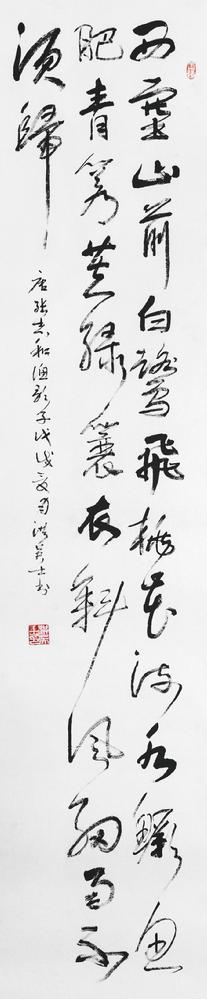 西塞山前白鷺飛桃花流水鱖魚
肥青箬笠綠簑衣斜風細雨不
須歸
唐張志和漁歌子戊戌夏月洪士书